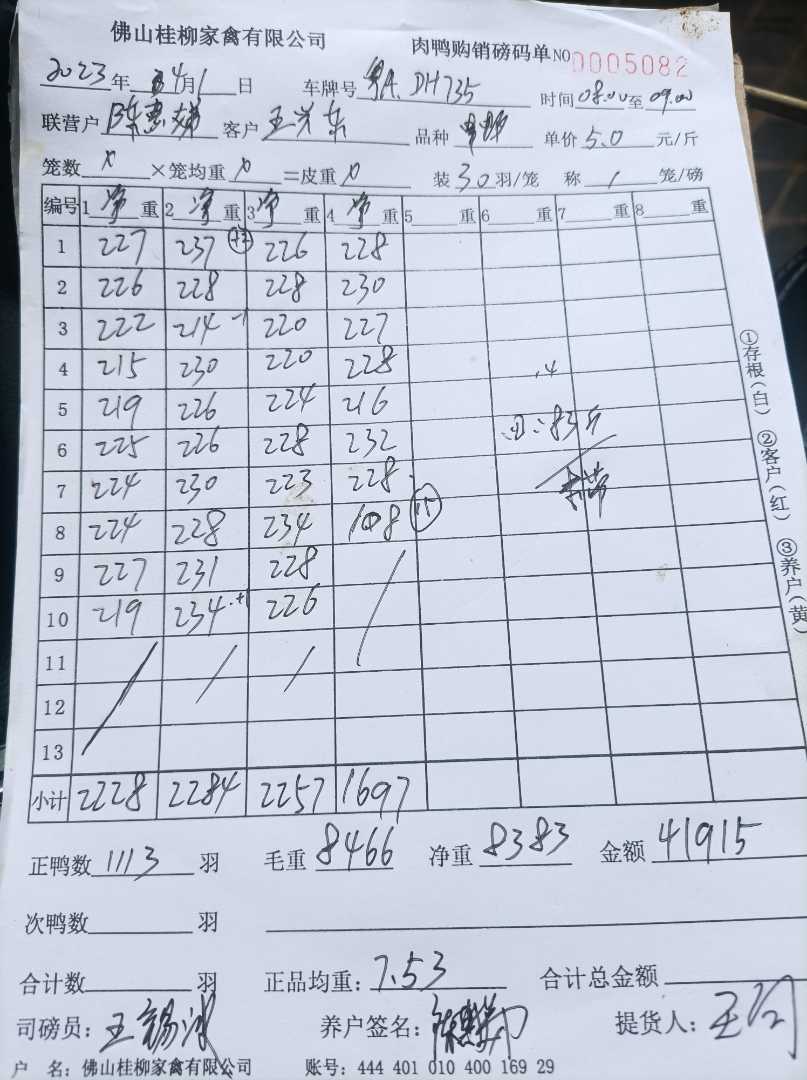 佛山桂柳家禽有限公司 肉鸭购销磅码单 NO 0005082
2023年 4月1日 车牌号 粤A.DH735 时间08.00至09.00
联营户 陈惠娣 客户 王兴东 品种 单价 5.0 元/斤
笼数 0 ×笼均重 0 =皮重 0 装30羽/笼 称 1 笼/磅
编号 1 净 重 2 净 重 3 净 重 4 净 重 5 重 6 重 7 重 8 重
1 227 237 226 228
2 226 228 228 230
3 222 214 -1 220 227
4 215 230 220 228
5 219 226 224 216
6 225 226 228 232
7 224 230 223 228
8 224 228 234 108 15
9 227 231 228
10 219 234 +1 226
11
12
13
小计 2228 2284 2257 1697
.4
83斤
①存根(白) ②客户(红) ③养户(黄)
正鸭数 1113 羽 毛重 8466 净重 8383 金额 41915
次鸭数 羽
合计数 羽 正品均重: 7.53 合计总金额
司磅员: 王锡 养户签名: 陈惠娣 提货人: 王
户 名: 佛山桂柳家禽有限公司 账号: 444 401 010 400 169 29